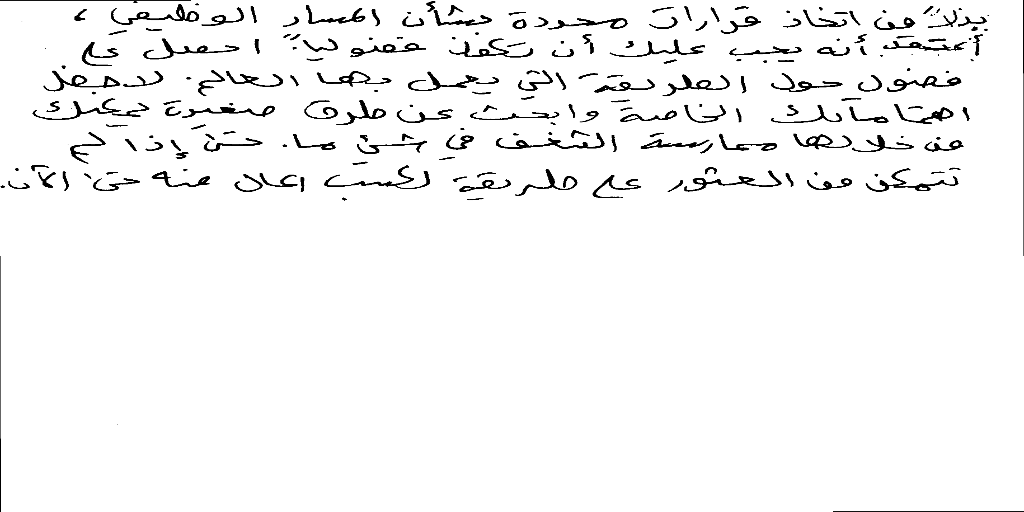 بدلاً من اتخاذ قرارات محددة بشأن المسار الوظيفي ،
أعتقد أنه يجب عليك أن تكون فضولياً. احصل على
فضول حول الطريقة التي يعمل بها العالم. لاحظ
اهتماماتك الخاصة وابحث عن طرق صغيرة يمكنك
من خلالها ممارسة الشغف في شئ ما. حتى إذا لم
تتمكن من العثور على طريقة لكسب المال منه حتى الآن.